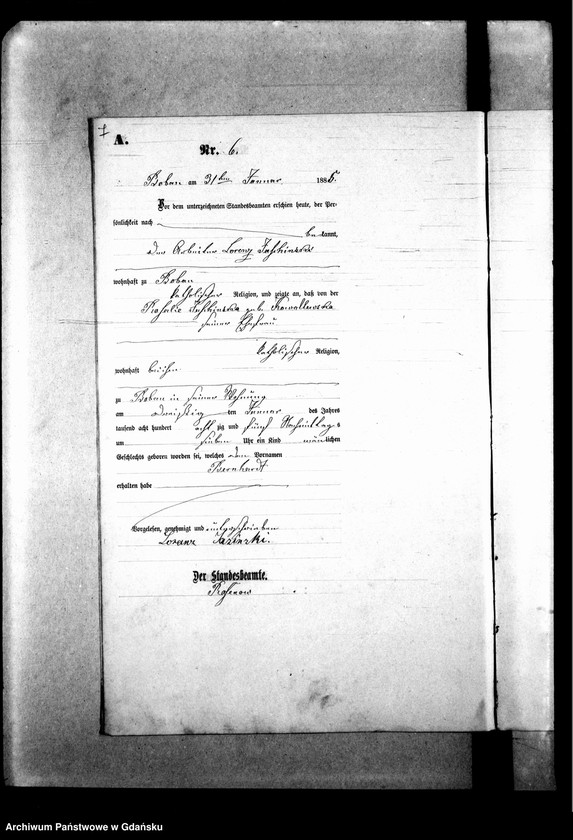 A.
Nr. 6.
Boban am 31ten Januar 1885.
Vor dem unterzeichneten Standesbeamten erschien heute, der Per-
sönlichkeit nach
bekannt,
der Arbeiter Lorenz
wohnhaft zu Boban
katholischer Religion, und zeigte an, daß von der
Rosalie geb. Kowallewska
seiner Ehefrau
katholischer Religion,
wohnhaft bei ihm
zu Boban in seiner Wohnung
am dreißigten Januar des Jahres
tausend acht hundert acht zig und fünf Nachmittags
um sieben Uhr ein Kind männlichen
Geschlechts geboren worden sei, welches den Vornamen
Bernhardt
erhalten habe
Vorgelesen, genehmigt und unterschrieben
Lorenz
Der Standesbeamte.
Archiwum Państwowe w Gdańsku